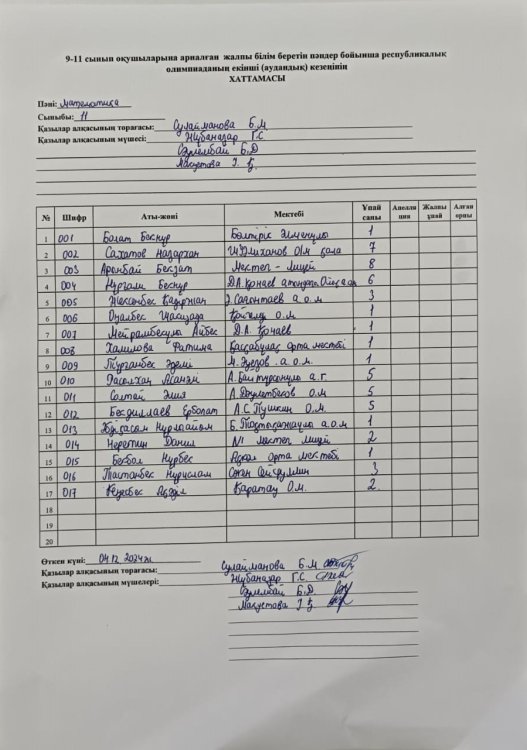 9-11 сынып оқушыларына арналған жалпы білім беретін пәндер бойынша республикалық
олимпиаданың екінші (аудандық) кезеңінің
ХАТТАМАСЫ
Пәні: Математика
Сыныбы: 11
Қазылар алқасының төрағасы: Сулайманова Б.М
Қазылар алқасының мүшесі: Жұбаназар Г.С
Б.Д
Мақұлтова
№ Шифр Аты-жөні Мектебі Ұпай саны Апелляция Жалпы ұпай Алған орны
1 001 Болат Бекнұр Бөлтірік Әлменұлы 1
2 002 Сахатов Назархан Ш.Уәлиханов О.м қала 7
3 003 Аренбай Бекзат Мектеп - лицей 8
4 004 Нұрғали Бекнұр Д.А. Қонаев атындағы 6
5 005 Жексенбек Қадыржан а.о.м 3
6 006 Оңалбек о.м. 1
7 007 Мейрамбекұлы Айбек Д.А. Қонаев 1
8 008 Халилова Фатима орта мектебі 1
9 009 Тұрғанбек Әдемі М. Әуезов а.о.м. 1
10 010 А. Байтұрсынұлы а.г. 5
11 011 Солтай А. Дәулетбеков о.м 5
12 012 Бесдуллаев Ерболат А.С. Пушкин о.м. 5
13 013 Нұрлайым Б. а.о.м 1
14 014 Неретин Данил №1 мектеп лицей 2
15 015 Бекбол Нұрбек орта мектебі 1
16 016 Тастанбек Нұрислам Сәкен Сейфуллин 3
17 017 Кеңесбек Қаратау О.м. 2
18
19
20
Өткен күні: 04.12.2024ж
Қазылар алқасының төрағасы: Сулайманова Б.М
Қазылар алқасының мүшелері: Жұбаназар Г.С
Б.Д.